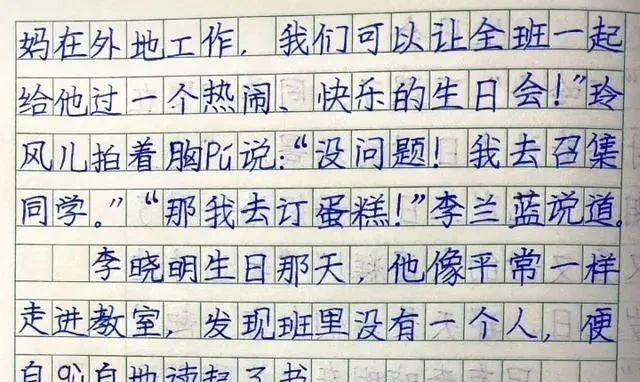 妈在外地工作，我们可以让全班一起
给他过一个热闹、快乐的生日会！”玲
风儿拍着胸Pú说：“没问题！我去召集
同学。”“那我去订蛋糕！”李兰蓝说道。
李晓明生日那天，他像平常一样
走进教室，发现班里没有一个人，便
自gù自地读起了书